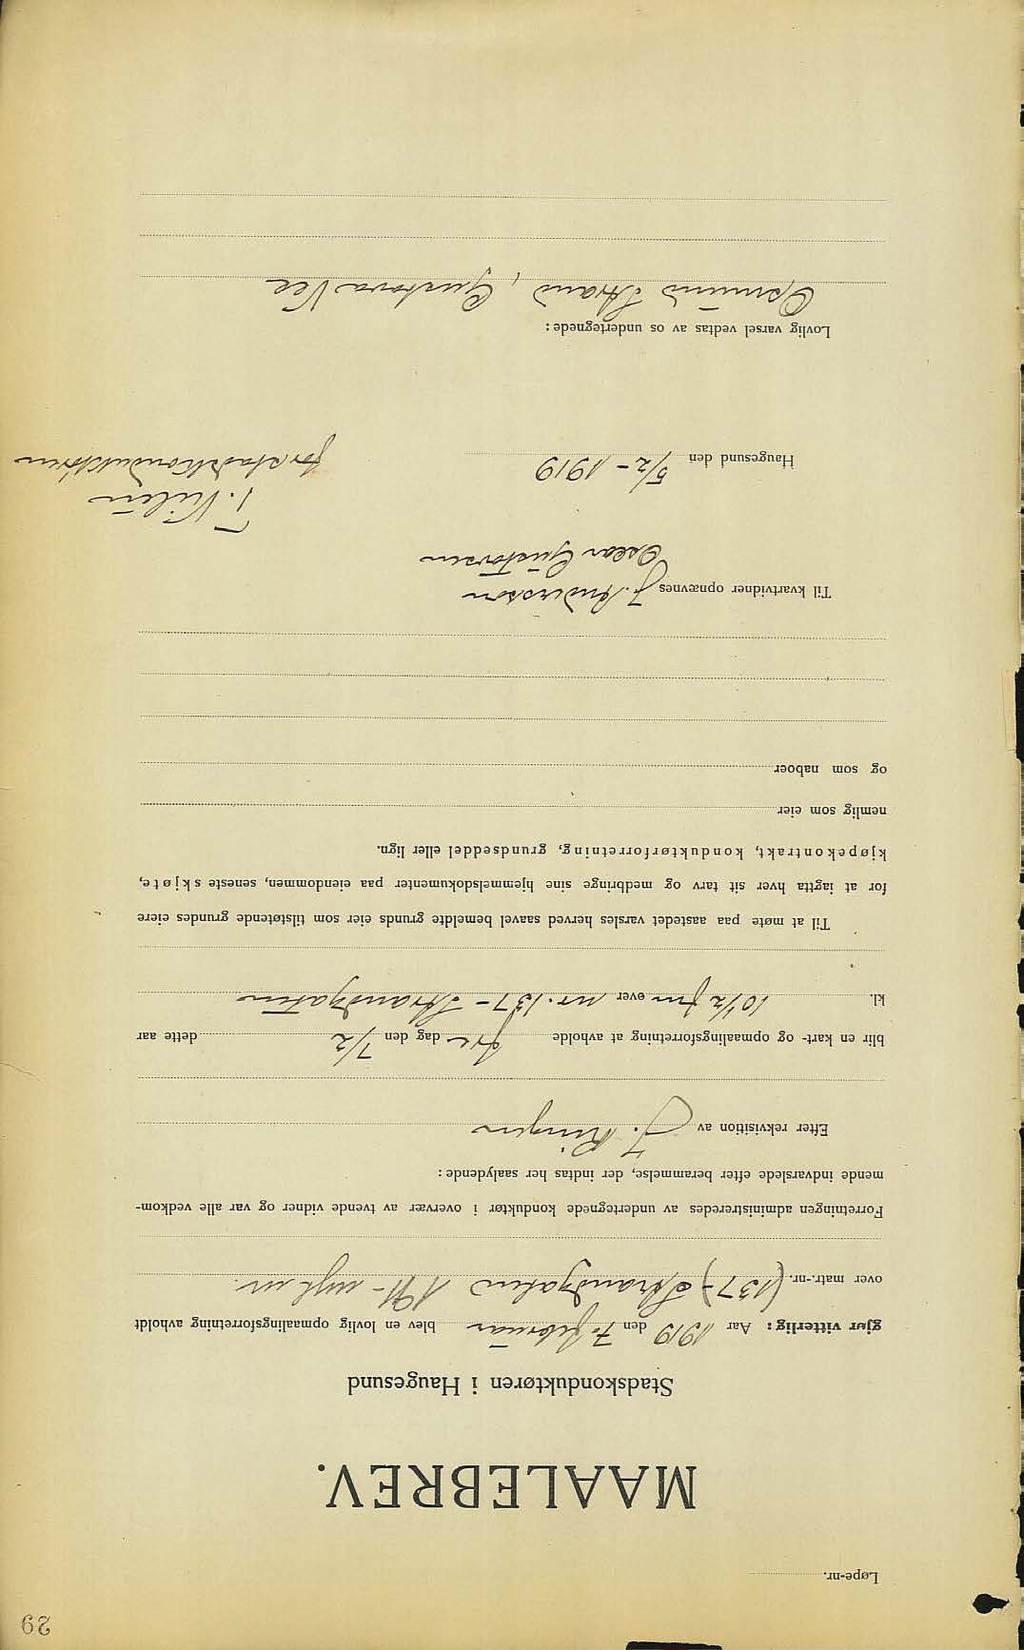 29
Løpe-nr.
MAALEBREV.
Stadskonduktøren i Haugesund
gjør vitterlig: Aar 1919 den 7. februar blev en lovlig opmaalingsforretning avholdt
over matr.-nr. (137-) Strandgaten 191 - nyt nr.
Forretningen administreredes av undertegnede konduktør i overvær av tvende vidner og var alle vedkom-
mende indvarslede efter berammelse, der indtas her saalydende:
Efter rekvisition av J. Ringen
blir en kart- og opmaalingsforretning at avholde fre dag den 7/2 dette aar
kl. 10 1/2 fm over nr. 137 - Strandgaten
Til at møte paa aastedet varsles herved saavel bemeldte grunds eier som tilstøtende grundes eiere
for at iagtta hver sit tarv og medbringe sine hjemmelsdokumenter paa eiendommen, seneste skjøte,
kjøpekontrakt, konduktørforretning, grundseddel eller lign.
nemlig som eier
og som naboer
Til kvartvidner opnævnes J. Anderson
Oscar Gustavsen
T. Nilsen
Haugesund den 5/2 - 1919
for stadskonduktøren
Lovlig varsel vedtas av os undertegnede:
Osmund Strand, Gustava Vee